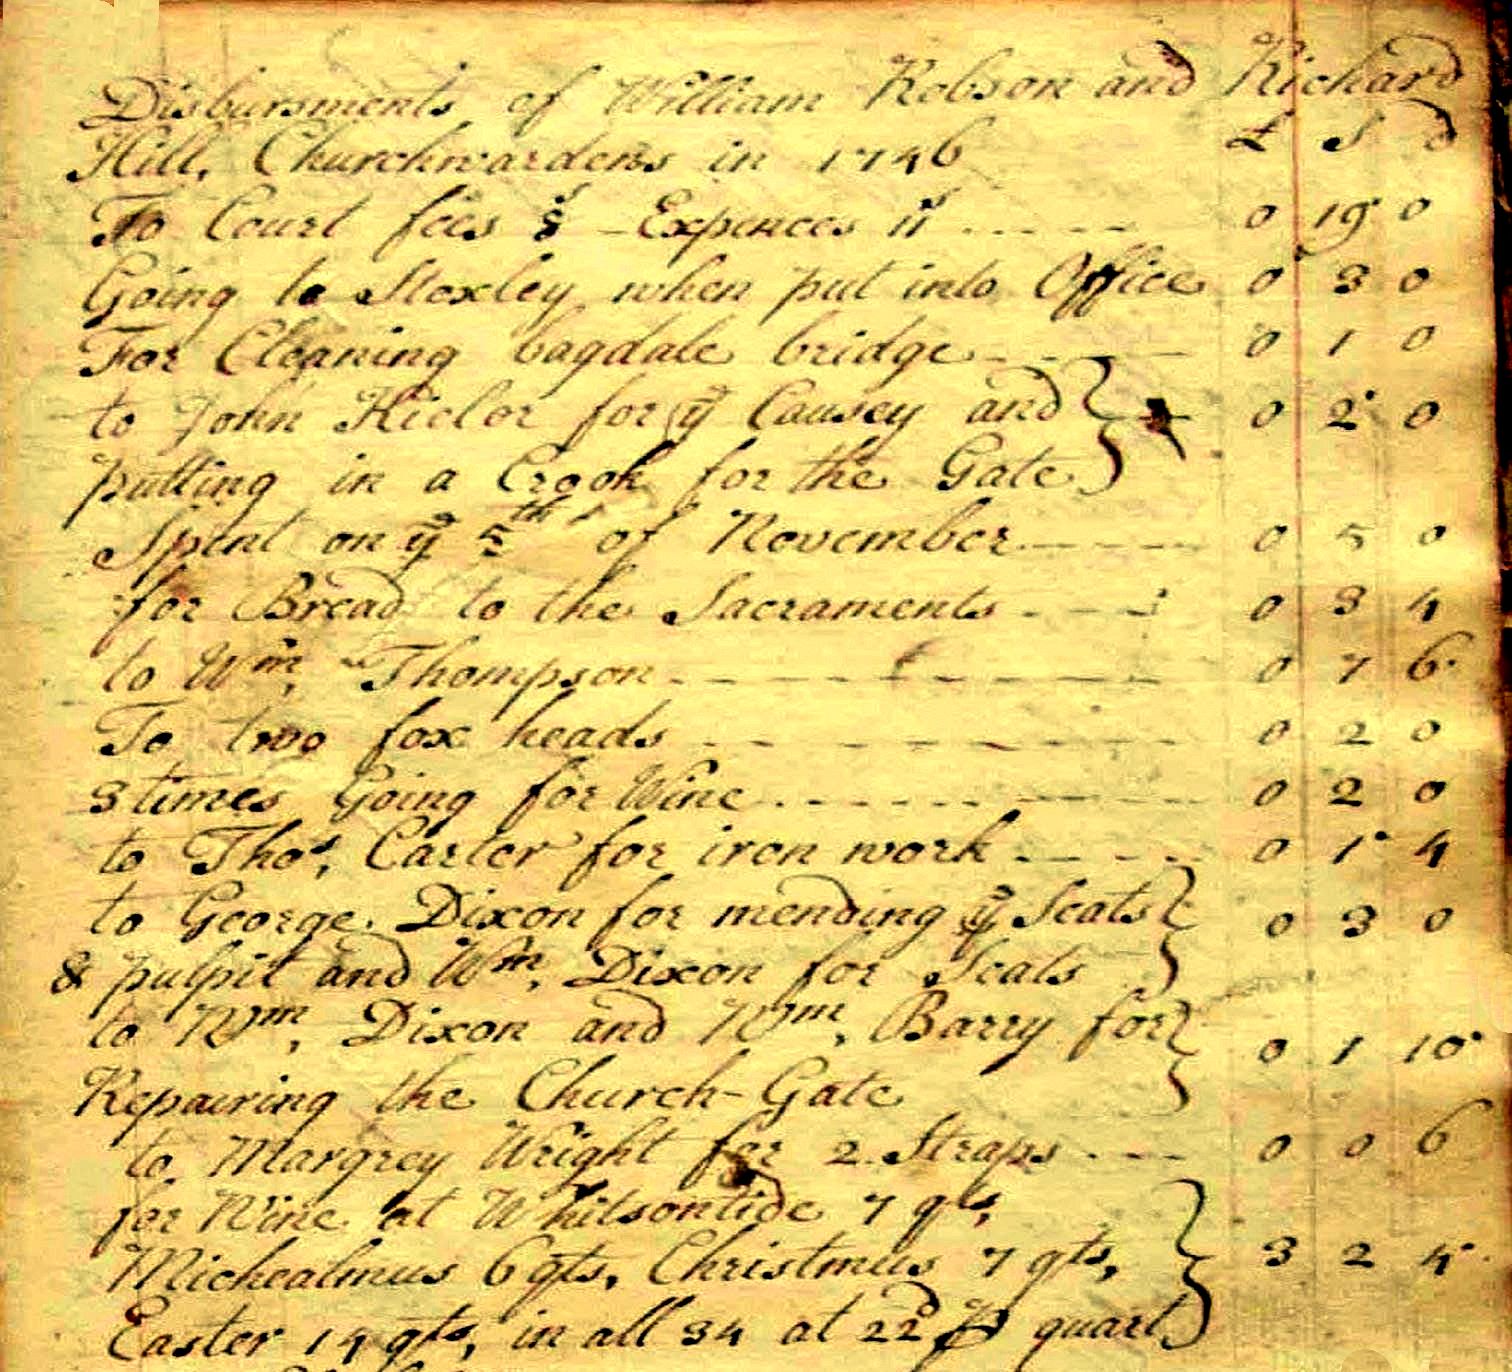 Disbursments of William Robson and Richard
Hill, Churchwardens in 1746 £ S d
To Court fees 8s - Expences 11s 0 19 0
Going to Stoxley when put into Office 0 3 0
For Cleaning bagdale bridge 0 1 0
to John Hicler for ye Causey and 0 2 0
putting in a Crook for the Gate
Spent on ye 5th of November 0 5 0
for Bread to the Sacraments 0 3 4
to Wm, Thompson 0 7 6
To two fox heads 0 2 0
3 times Going for Wine 0 2 0
to Thos, Carter for iron work 0 1 4
to George Dixon for mending ye Seats 0 3 0
& pulpit and Wm, Dixon for Seats
to Wm, Dixon and Wm, Barry for 0 1 10
Repairing the Church-Gate
to Margrey Wright for 2 Straps 0 0 6
for Wine at Whitsontide 7 qts,
Michealmus 6 qts, Christmus 7 qts, 3 2 4
Easter 14 qts, in all 34 at 22d P quart